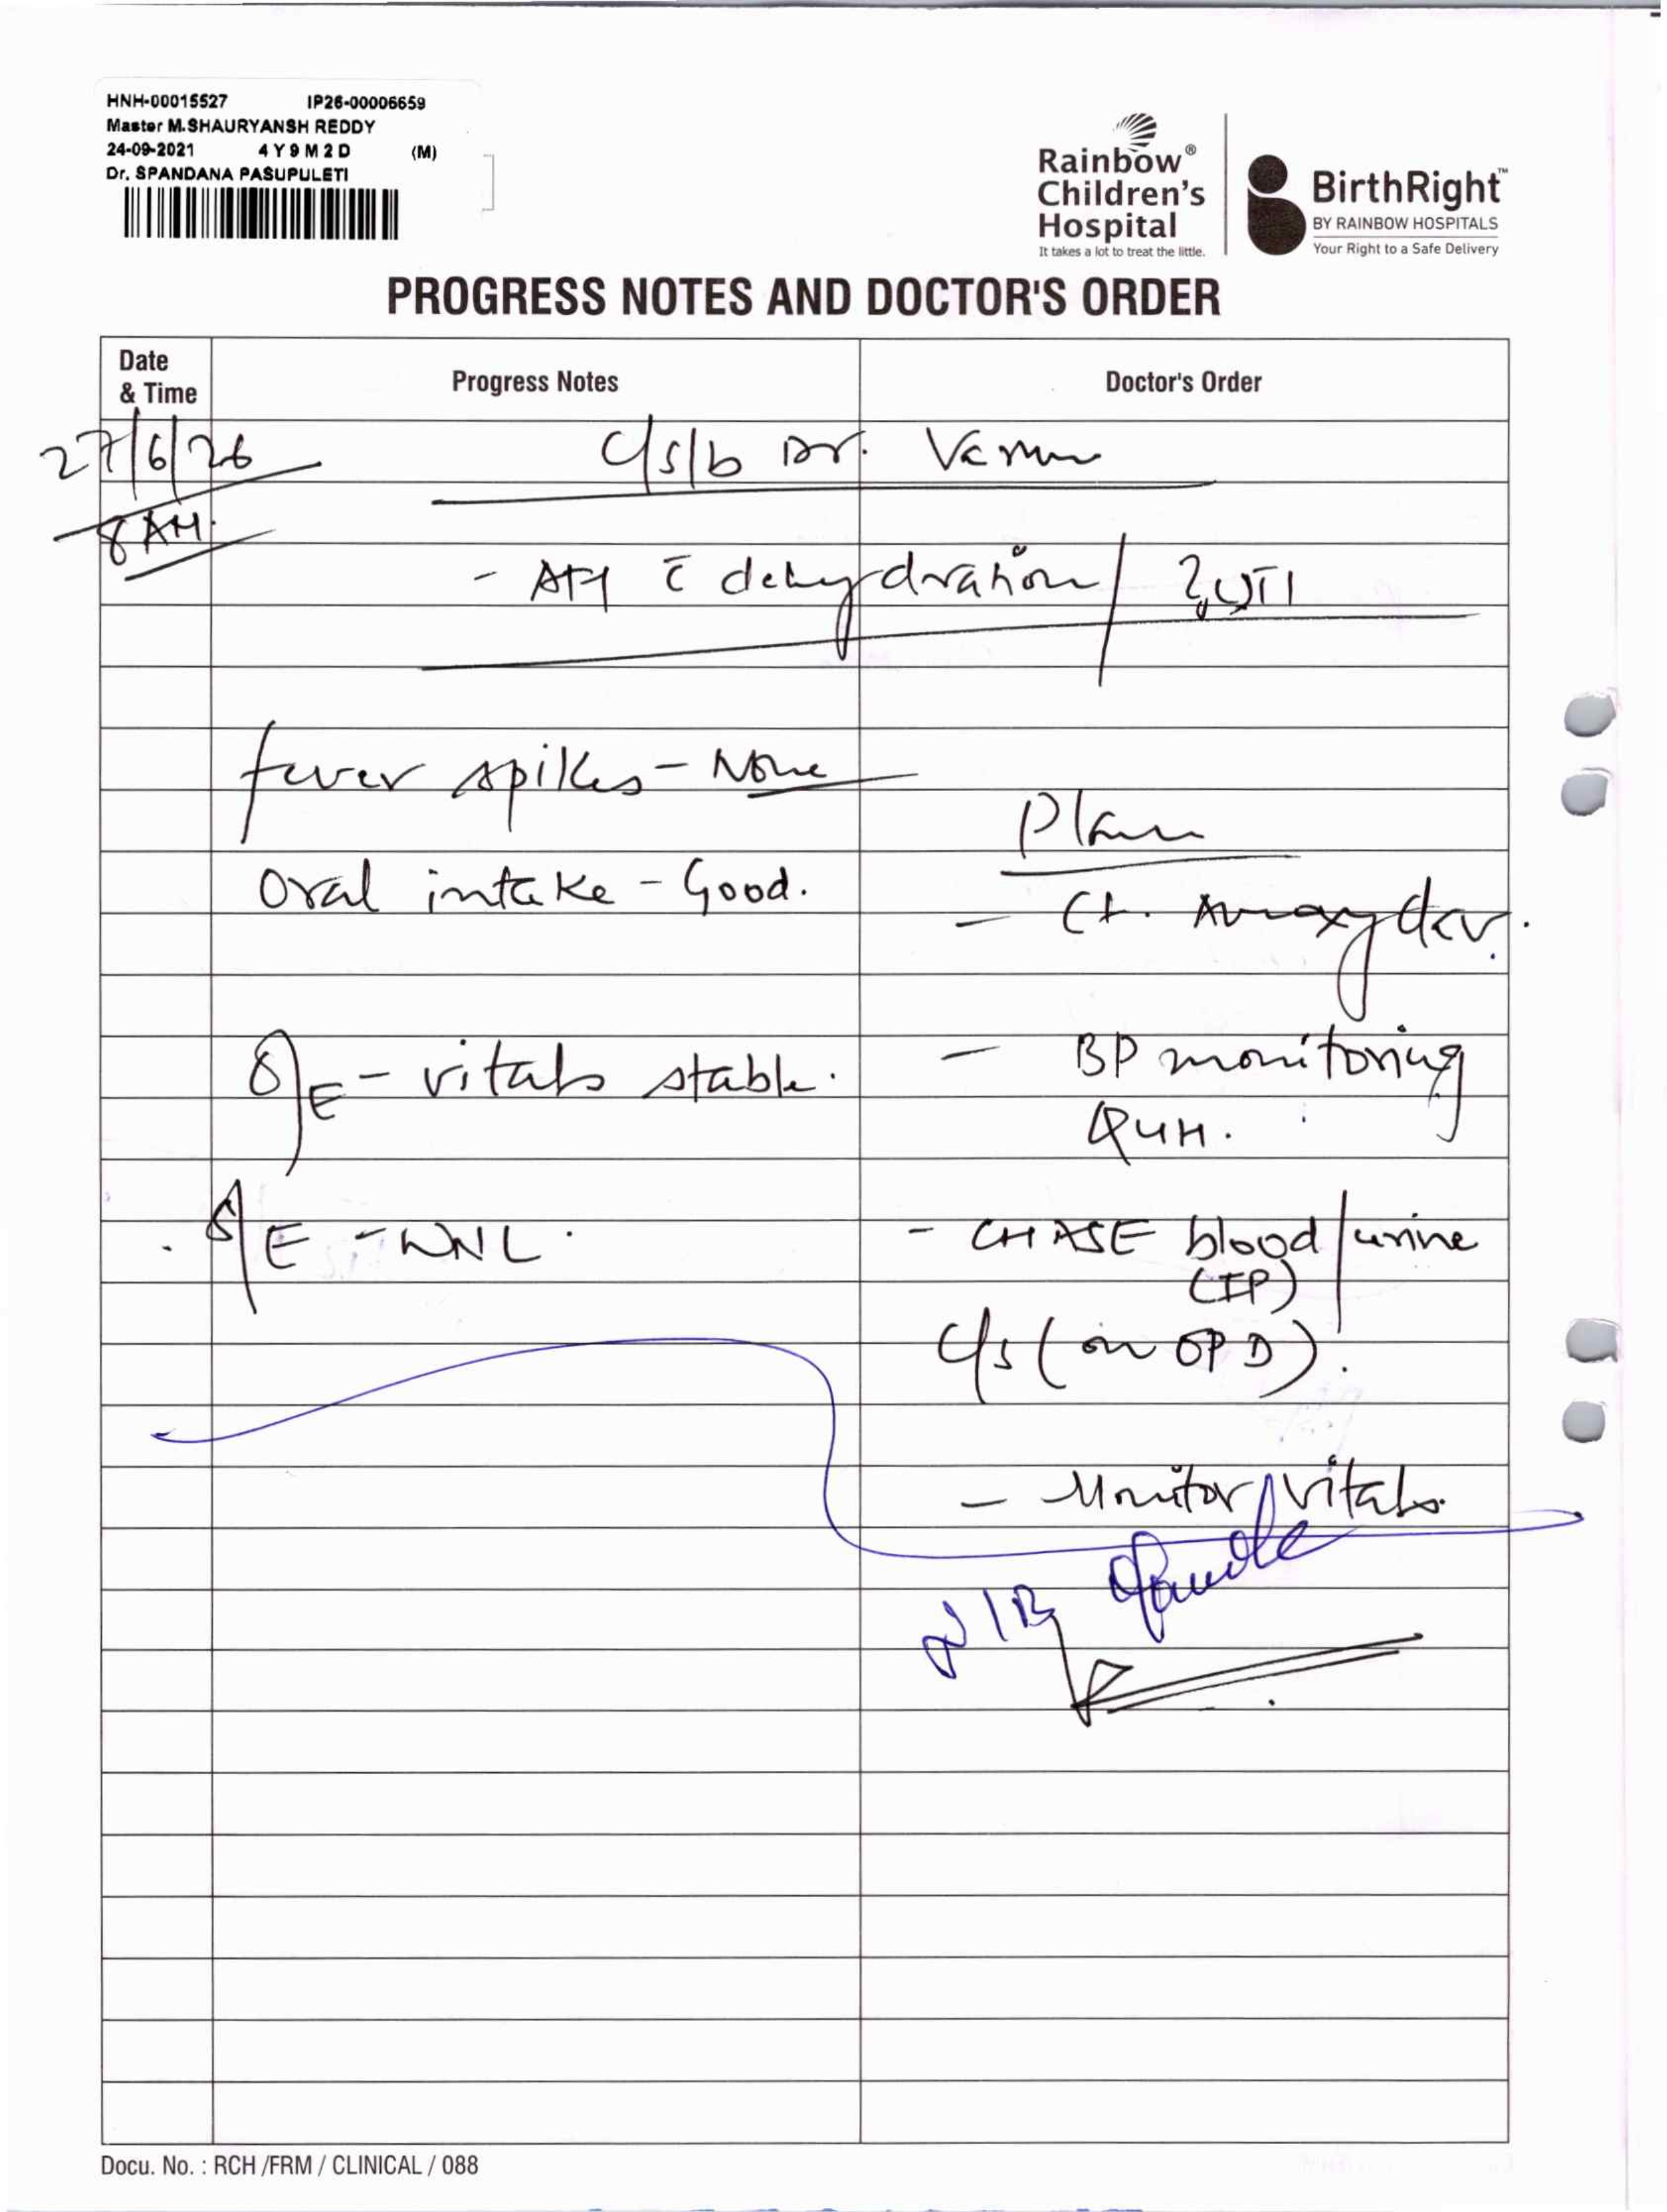 HNH-00015527 IP26-00006659
Master M.SHAURYANSH REDDY
24-09-2021 4Y9M2D (M)
Dr. SPANDANA PASUPULETI
Rainbow®
Children's
Hospital
It takes a lot to treat the little.
BirthRight™
BY RAINBOW HOSPITALS
Your Right to a Safe Delivery
PROGRESS NOTES AND DOCTOR'S ORDER
Date
& Time
Progress Notes
Doctor's Order
27/6/26
8 AM.
C/s/b Dr.
- AFI c̄ dehydration / ? UTI
fever spikes - None
Oral intake - Good.
O/E - vitals stable.
S/E - WNL.
Plan
- Ct. Amoxyclav.
- BP monitoring
Q4H.
- CHASE blood/urine
(IP)
C/s (on OPD).
- Monitor vitals.
Docu. No. : RCH /FRM / CLINICAL / 088